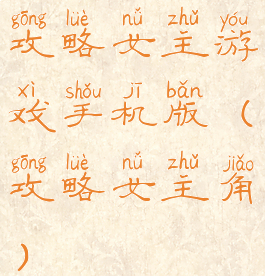 gōng lüè nǚ zhǔ yóu
攻略女主游
xì shǒu jī bǎn
戏手机版（
gōng lüè nǚ zhǔ jiǎo
攻略女主角
）